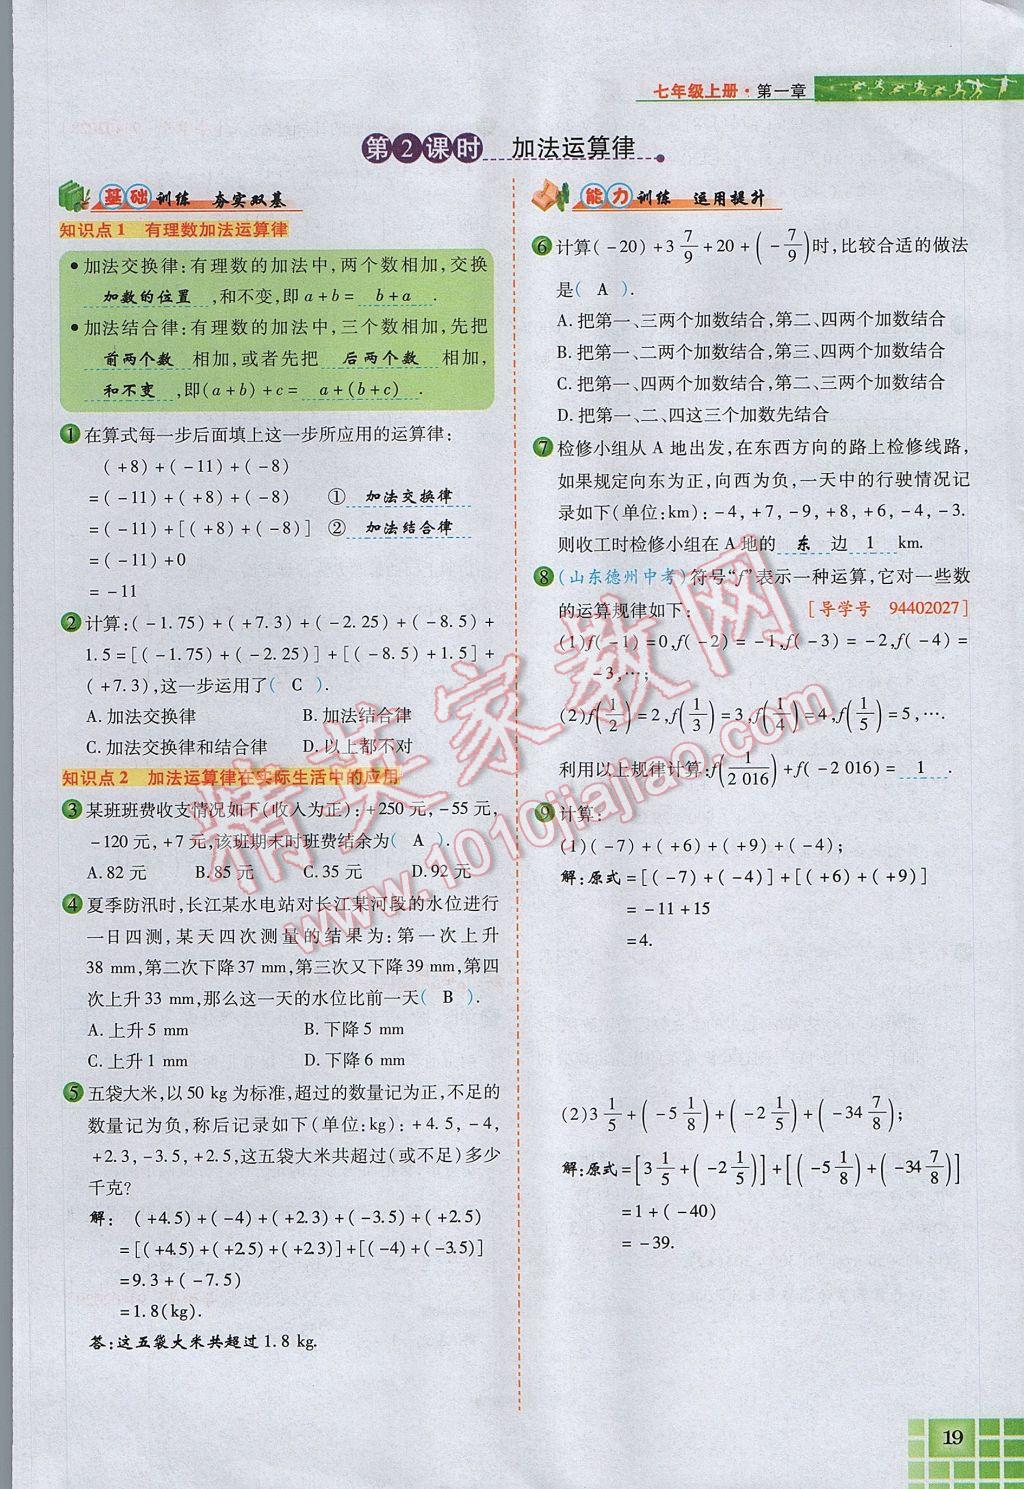 七年级上册·第一章
第2课时 加法运算律
基础训练 夯实双基
知识点1 有理数加法运算律
•加法交换律:有理数的加法中,两个数相加,交换
加数的位置,和不变,即a+b= b+a .
•加法结合律:有理数的加法中,三个数相加,先把
前两个数 相加,或者先把 后两个数 相加,
和不变 ,即(a+b)+c= a+(b+c) .
1 在算式每一步后面填上这一步所应用的运算律:
(+8)+(-11)+(-8)
=(-11)+(+8)+(-8) ① 加法交换律
=(-11)+[(+8)+(-8)] ② 加法结合律
=(-11)+0
=-11
2 计算:(-1.75)+(+7.3)+(-2.25)+(-8.5)+
1.5=[(-1.75)+(-2.25)]+[(-8.5)+1.5]+
(+7.3),这一步运用了( C ).
A.加法交换律 B.加法结合律
C.加法交换律和结合律 D.以上都不对
知识点2 加法运算律在实际生活中的应用
3 某班班费收支情况如下(收入为正):+250元,-55元,
-120元,+7元,该班期末时班费结余为( A ).
A.82元 B.85元 C.35元 D.92元
4 夏季防汛时,长江某水电站对长江某河段的水位进行
一日四测,某天四次测量的结果为:第一次上升
38 mm,第二次下降37 mm,第三次又下降39 mm,第四
次上升33 mm,那么这一天的水位比前一天( B ).
A.上升5 mm B.下降5 mm
C.上升1 mm D.下降6 mm
5 五袋大米,以50 kg为标准,超过的数量记为正,不足的
数量记为负,称后记录如下(单位:kg):+4.5,-4,
+2.3,-3.5,+2.5,这五袋大米共超过(或不足)多少
千克?
解: (+4.5)+(-4)+(+2.3)+(-3.5)+(+2.5)
=[(+4.5)+(+2.5)+(+2.3)]+[(-4)+(-3.5)]
=9.3+(-7.5)
=1.8(kg).
答:这五袋大米共超过1.8 kg.
能力训练 运用提升
6 计算(-20)+3 7/9+20+(-7/9)时,比较合适的做法
是( A ).
A.把第一、三两个加数结合,第二、四两个加数结合
B.把第一、二两个加数结合,第三、四两个加数结合
C.把第一、四两个加数结合,第二、三两个加数结合
D.把第一、二、四这三个加数先结合
7 检修小组从A地出发,在东西方向的路上检修线路,
如果规定向东为正,向西为负,一天中的行驶情况记
录如下(单位:km):-4,+7,-9,+8,+6,-4,-3.
则收工时检修小组在A地的 东 边 1 km.
8 (山东德州中考)符号“f”表示一种运算,它对一些数
的运算规律如下: [导学号 94402027]
(1)f(-1)=0,f(-2)=-1,f(-3)=-2,f(-4)=
-3,…;
(2)f(1/2)=2,f(1/3)=3,f(1/4)=4,f(1/5)=5,….
利用以上规律计算:f(1/2 016)+f(-2 016)= 1 .
9 计算:
(1)(-7)+(+6)+(+9)+(-4);
解:原式=[(-7)+(-4)]+[(+6)+(+9)]
=-11+15
=4.
(2)3 1/5+(-5 1/8)+(-2 1/5)+(-34 7/8);
解:原式=[3 1/5+(-2 1/5)]+[(-5 1/8)+(-34 7/8)]
=1+(-40)
=-39.
精英家教网
www.1010jiajiao.com
19